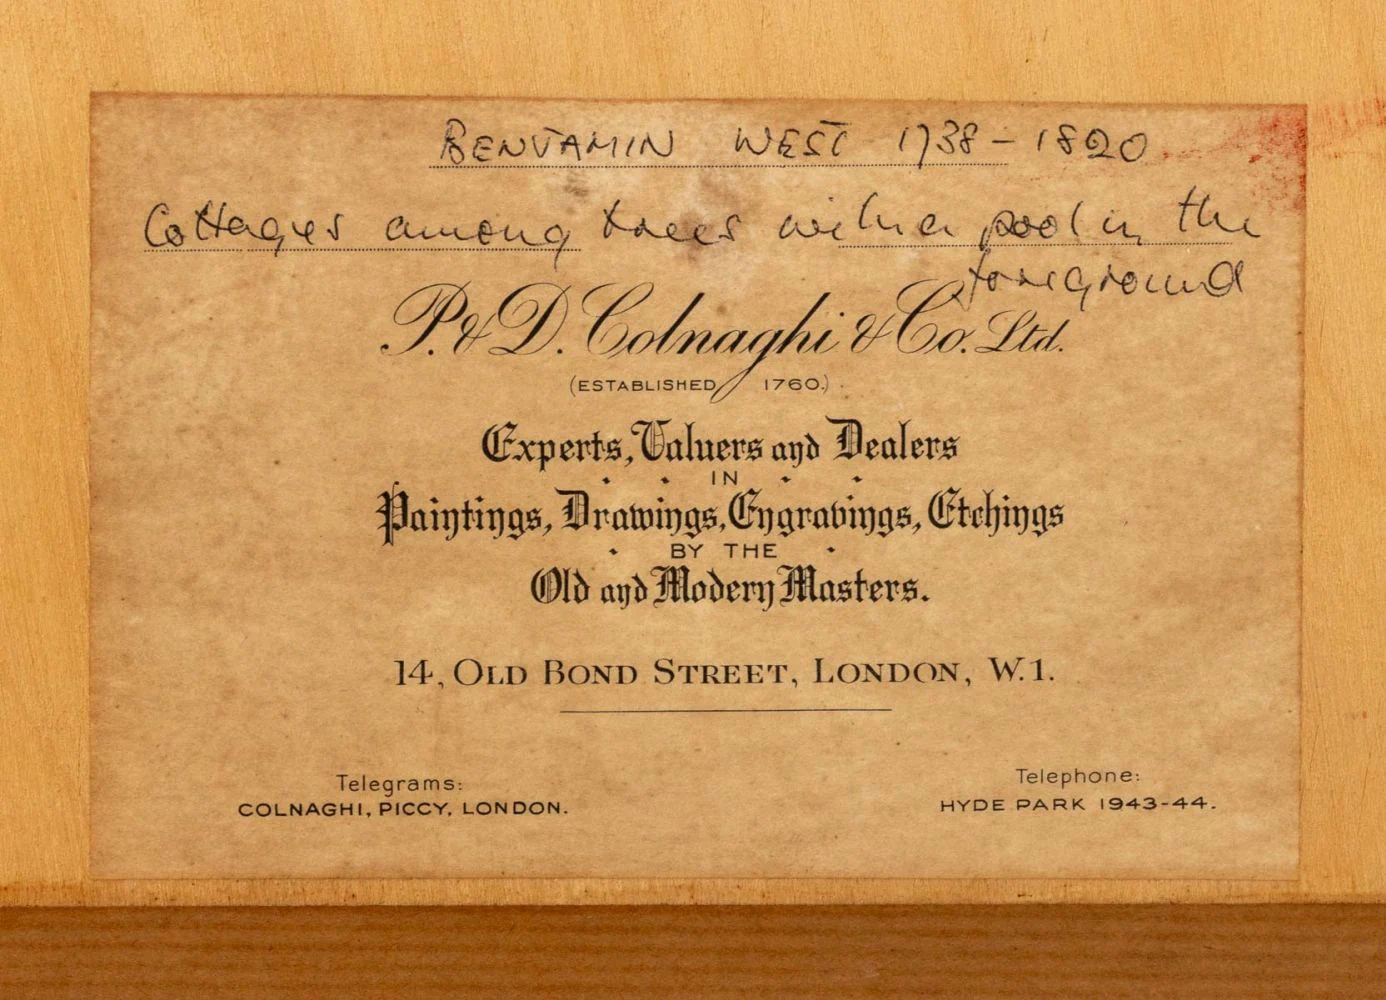 BENJAMIN WEST 1738-1820
Cottages among trees with a pool in the
foreground
P. & D. Colnaghi & Co. Ltd.
(ESTABLISHED 1760.)
Experts, Valuers and Dealers
IN
Paintings, Drawings, Engravings, Etchings
BY THE
Old and Modern Masters.
14, OLD BOND STREET, LONDON, W.1.
Telegrams:
COLNAGHI, PICCY, LONDON.
Telephone:
HYDE PARK 1943-44.